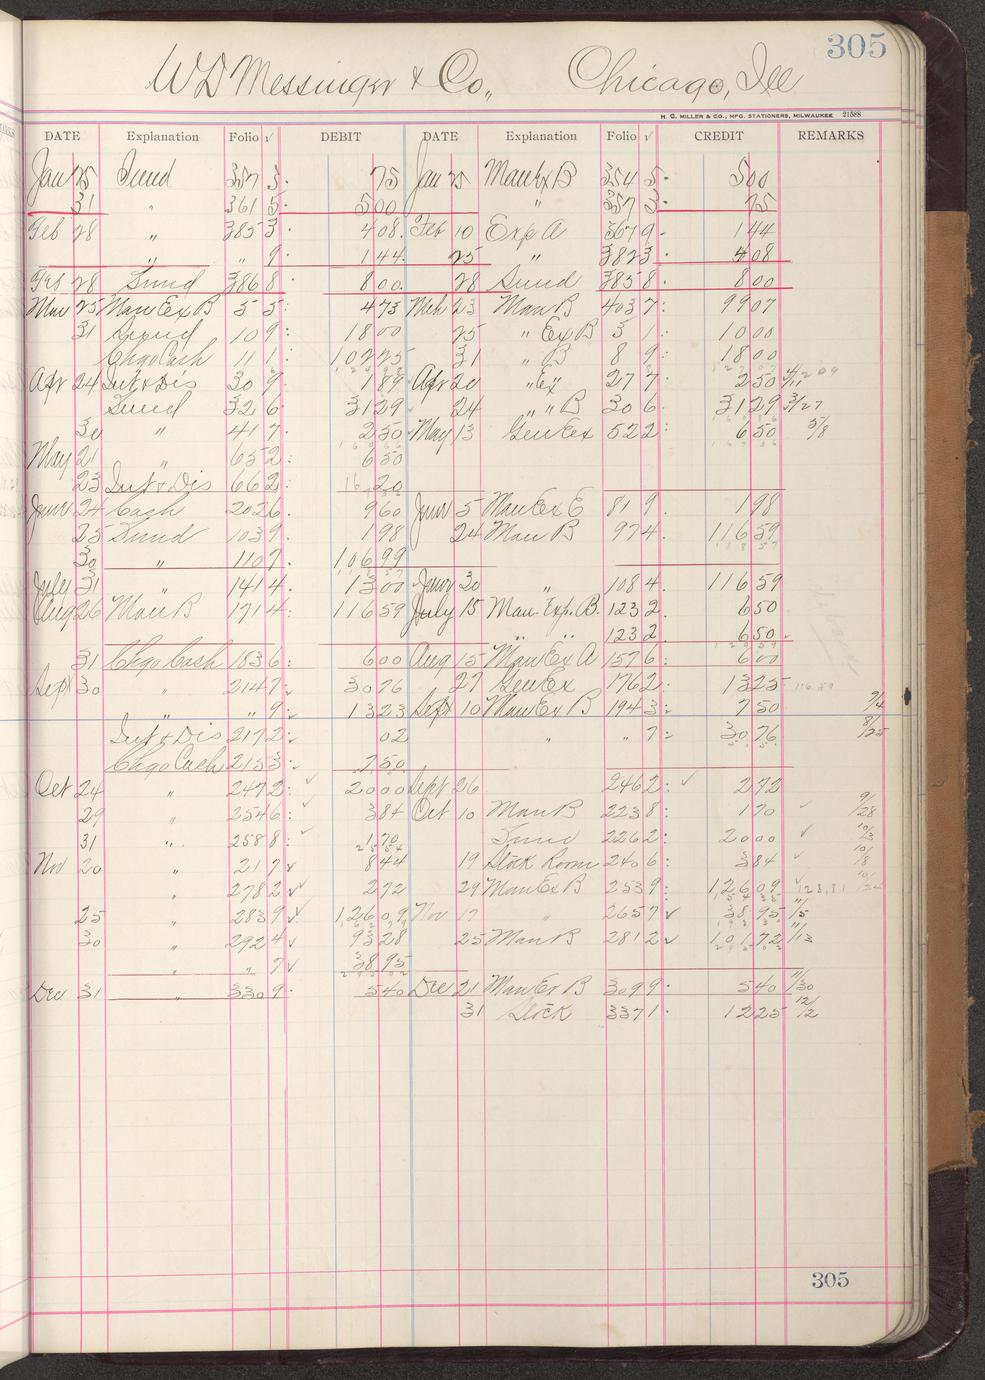 305
W D Messinger & Co., Chicago, Ill
H. G. MILLER & CO., MFG. STATIONERS, MILWAUKEE 21588
DATE Explanation Folio √ DEBIT DATE Explanation Folio √ CREDIT REMARKS
Jan 25 Sund 357 3 75 Jan 25 Man Ex B 354 5 500
31 " 361 5 500 " 357 3 75
Feb 28 " 385 3 408 Feb 10 Exp A 367 9 144
" " 9 144 25 " 382 3 408
Feb 28 Sund 386 8 800 28 Sund 385 8 800
Mar 25 Man Ex B 5 5 473 Mch 23 Man B 403 7 9907
31 Sund 10 9 1800 25 " Ex B 3 1 1000
Chgo Cash 11 1 10225 31 " B 8 9 1800
Apr 24 Int & Dis 30 9 189 Apr 20 " Ex 27 7 250
Sund 32 6 3129 24 " " B 30 6 3129 3/27
30 " 41 7 250 May 13 Gen Ex 52 2 650 5/8
May 21 " 65 2 650
23 Int & Dis 66 2 1620
June 24 Cash 202 6 960 June 5 Man Ex E 81 9 198
25 Sund 103 9 198 24 Man B 97 4 11659
30 " 110 7 10699
July 31 " 141 4 1300 June 30 " 108 4 11659
Aug 26 Man B 171 4 11659 July 15 Man. Exp. B. 123 2 650
" " 123 2 650
31 Chgo Cash 183 6 600 Aug 15 Man Ex A 157 6 600
Sept 30 " 214 7 3076 27 Gen Ex 176 2 1325 116.59
" " 9 1323 Sept 10 Man Ex B 194 3 750 9/4
Int & Dis 217 2 02 " " 7 3076 8/25
Chgo Cash 215 3 750
Oct 24 " 247 2 2000 Sept 26 246 2 272
29 " 254 6 384 Oct 10 Man B 223 8 170 9/28
31 " 258 8 170 Sund 226 2 2000 10/3
Nov 20 " 21 7 844 19 Stock Room 240 6 384 10/8
" 278 2 272 29 Man Ex B 253 9 12609 128,81
25 " 283 9 12609 Nov 17 " 265 7 3895 11/5
30 " 292 4 9328 25 Man B 281 2 10172 11/13
" " 7 3895
Dec 31 " 330 9 540 Dec 21 Man Ex B 309 9 540 11/30
31 Stock 337 1 1225 12/2
305